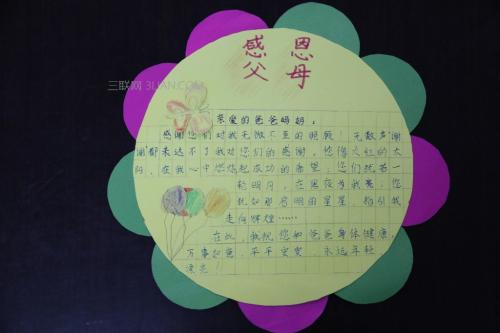 感 恩
父 母
三联网 3LIAN.COM
亲爱的爸爸妈妈：
感谢您们对我无微不至的照顾！无数声“谢
谢”都表达不了我对您们的感谢，您像火红的太
阳，在我心中燃烧起成功的希望；您们犹若一
轮明月，在黑夜为我亮；您
犹如那启明的星星，指引我
走向辉煌……
在此，我祝您如爸爸身体健康，
万事如意，平平安安，永远年轻
漂亮！